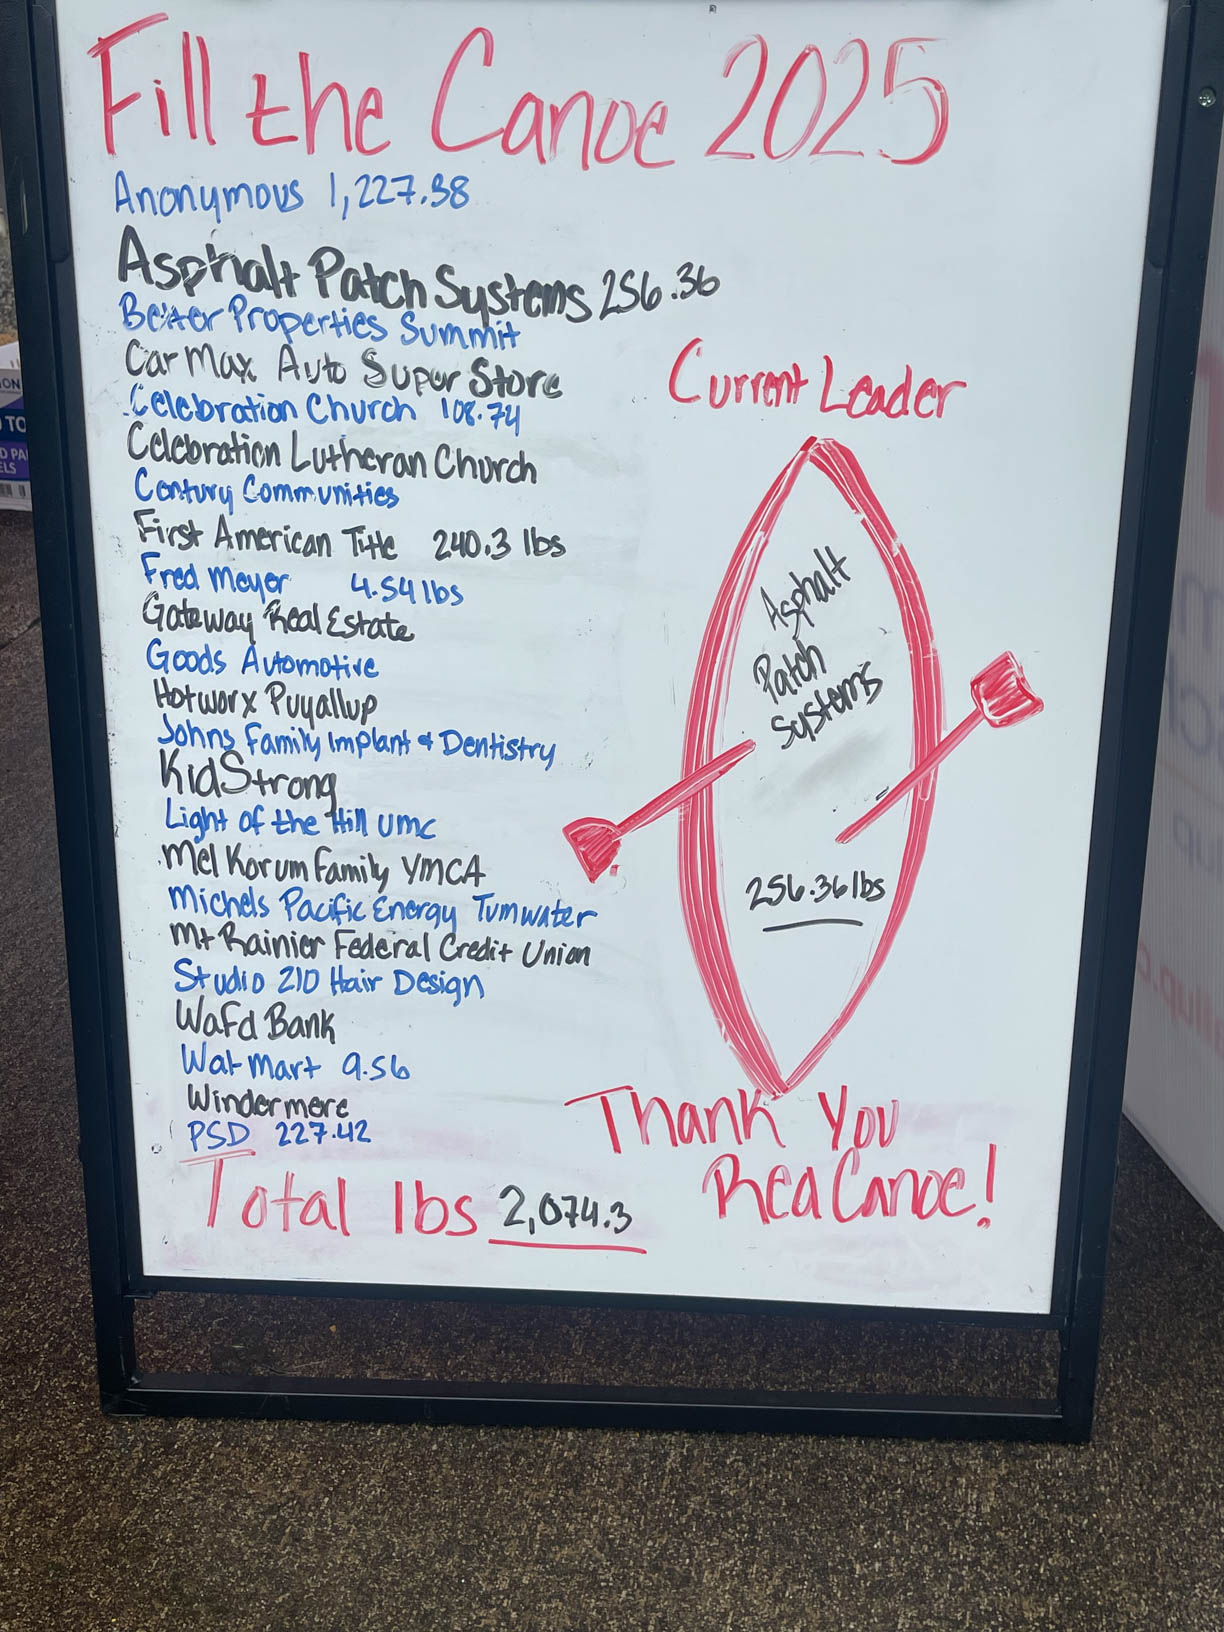 Fill the Canoe 2025
Anonymous 1,227.38
Asphalt Patch Systems 256.36
Better Properties Summit
CarMax Auto Super Store
Celebration Church 108.74
Celebration Lutheran Church
Century Communities
First American Title 240.3 lbs
Fred Meyer 4.54 lbs
Gateway Real Estate
Goods Automotive
Hotworx Puyallup
Johns Family Implant & Dentistry
KidStrong
Light of the Hill UMC
Mel Korum Family YMCA
Michels Pacific Energy Tumwater
Mt Rainier Federal Credit Union
Studio 210 Hair Design
WaFd Bank
Wal Mart 9.56
Windermere
PSD 227.42
Total lbs 2,074.3
Current Leader
Asphalt
Patch
Systems
256.36 lbs
Thank You
Rea Canoe!